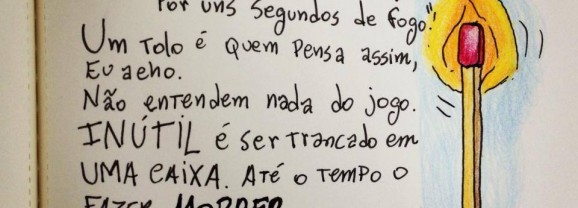 Por uns segundos de fogo."
Um tolo é quem pensa assim,
Eu acho.
Não entendem nada do jogo.
INÚTIL é ser trancado em
UMA CAIXA. ATÉ O TEMPO O
FAZER MORRER